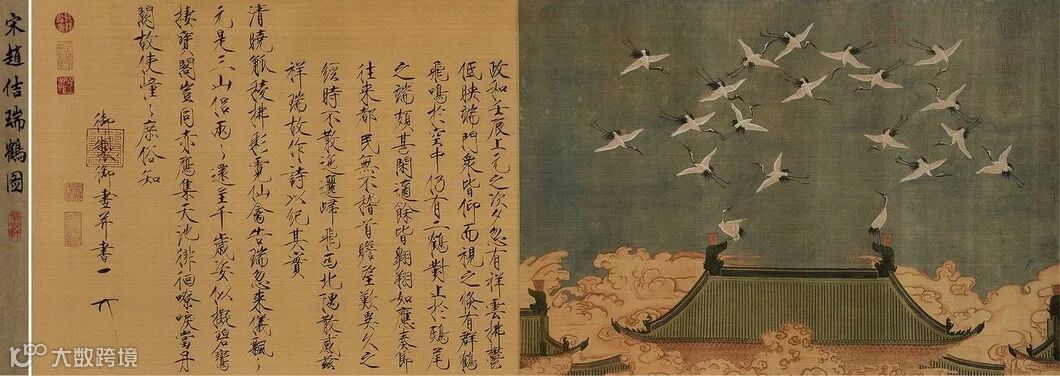 政和壬辰上元之次夕忽有祥雲拂鬱
低映端門衆皆仰而視之倏有群鶴
飛鳴於空中仍有二鶴對止於鴟尾
之端頗甚閑適餘皆翱翔如應奏節
往來都民無不稽首瞻望歎異久之
經時不散迤邐歸飛西北隅散感茲
祥瑞故作詩以紀其實
清曉觚稜拂彩霓仙禽告瑞忽來儀飄〻
元是三山侶兩〻還呈千歲姿似擬碧鸞
棲寶閣豈同赤雁集天池徘徊嘹唳當丹
闕故使憧〻庶俗知
御製御畫并書
宋趙佶瑞鶴圖
大数跨境